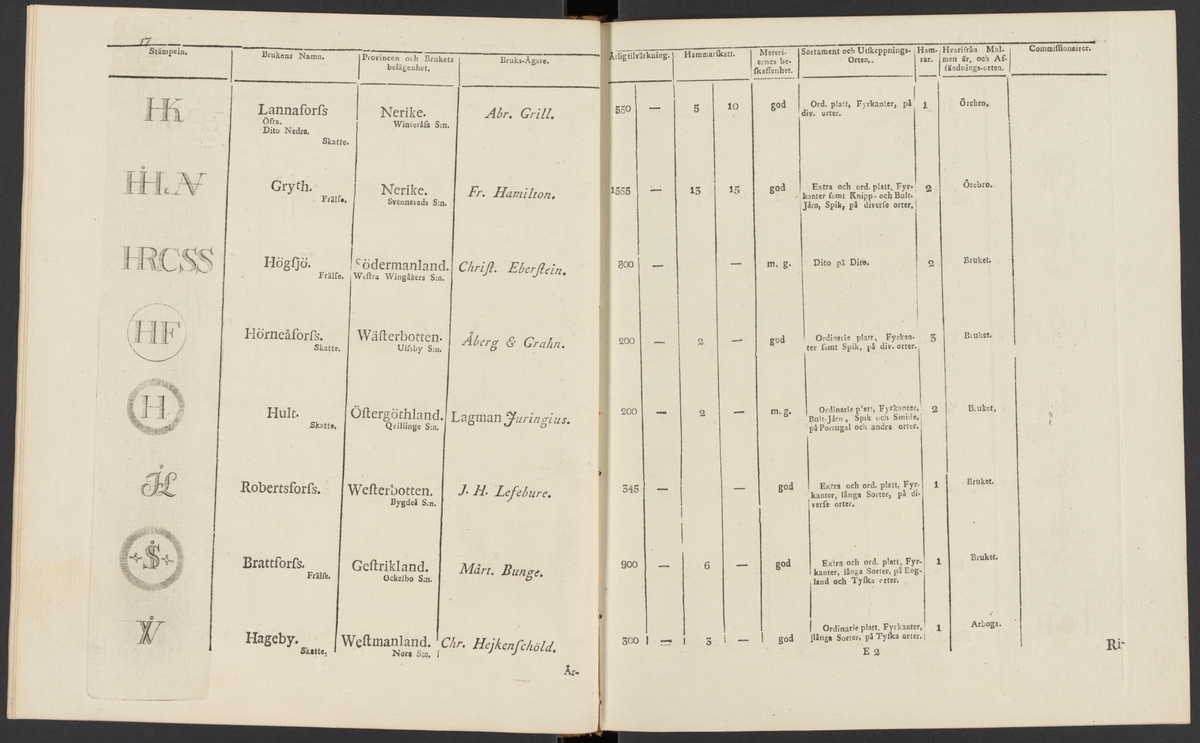 17
Stämpeln. Brukens Namn. Provincen och Brukets belägenhet. Bruks-Ägare. Årlig tilvärkning. Hammarſkatt. Materiernes beſkaffenhet. Sortament och Utſkeppnings-Orten. Hamrar. Hvarifrån Malmen är, och Afſändnings-orten. Commiſſionairer.
HK Lannaforſs Nerike. Abr. Grill. 550 — 5 10 god Ord. platt, Fyrkanter, på 1 Örebro.
Öfra. Winteråſa S:n. div. orter.
Dito Nedre.
Skatte.
HH.N Gryth. Nerike. Fr. Hamilton. 1555 — 13 15 god Extra och ord. platt, Fyr- 2 Örebro.
Frälſe. Svennevads S:n. kanter ſamt Knipp- och Bult-
Järn, Spik, på diverſe orter.
HRCSS Högſjö. Södermanland. Chriſt. Eberſtein. 800 — — m. g. Dito på Dito. 2 Bruket.
Frälſe. Weſtra Wingåkers S:n.
HF Hörneåforſs. Wäſterbotten. Åberg & Grahn. 200 — 2 — god Ordinarie platt, Fyrkan- 3 Bruket.
Skatte. Ulſsby S:n. ter ſamt Spik, på div. orter.
H Hult. Öſtergöthland. Lagman Juringius. 200 — 2 — m. g. Ordinarie platt, Fyrkanter, 2 Bruket.
Skatte. Qvillinge S:n. Bult-Järn, Spik och Smide,
på Portugal och andra orter.
Robertsforſs. Weſterbotten. J. H. Lefebure. 345 — — god Extra och ord. platt, Fyr- 1 Bruket.
Bygdeå S:n. kanter, långa Sorter, på di-
verſe orter.
S Brattforſs. Geſtrikland. Mårt. Bunge. 900 — 6 — god Extra och ord. platt, Fyr- 1 Bruket.
Frälſe. Ockelbo S:n. kanter, långa Sorter, på Eng-
land och Tyſka orter.
Hageby. Weſtmanland. Chr. Hejkenſchöld. 300 — 3 — god Ordinarie platt, Fyrkanter, 1 Arboga.
Skatte. Nora S:n. långa Sorter, på Tyſka orter.
Är-
E 2
Ri-